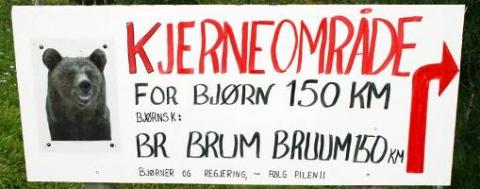 KJERNEOMRÅDE
FOR BJØRN 150 KM
BJØRNSK:
BR BRUM BRUUM 150 KM
BJØRNER OG REGJERING, – FØLG PILEN!!